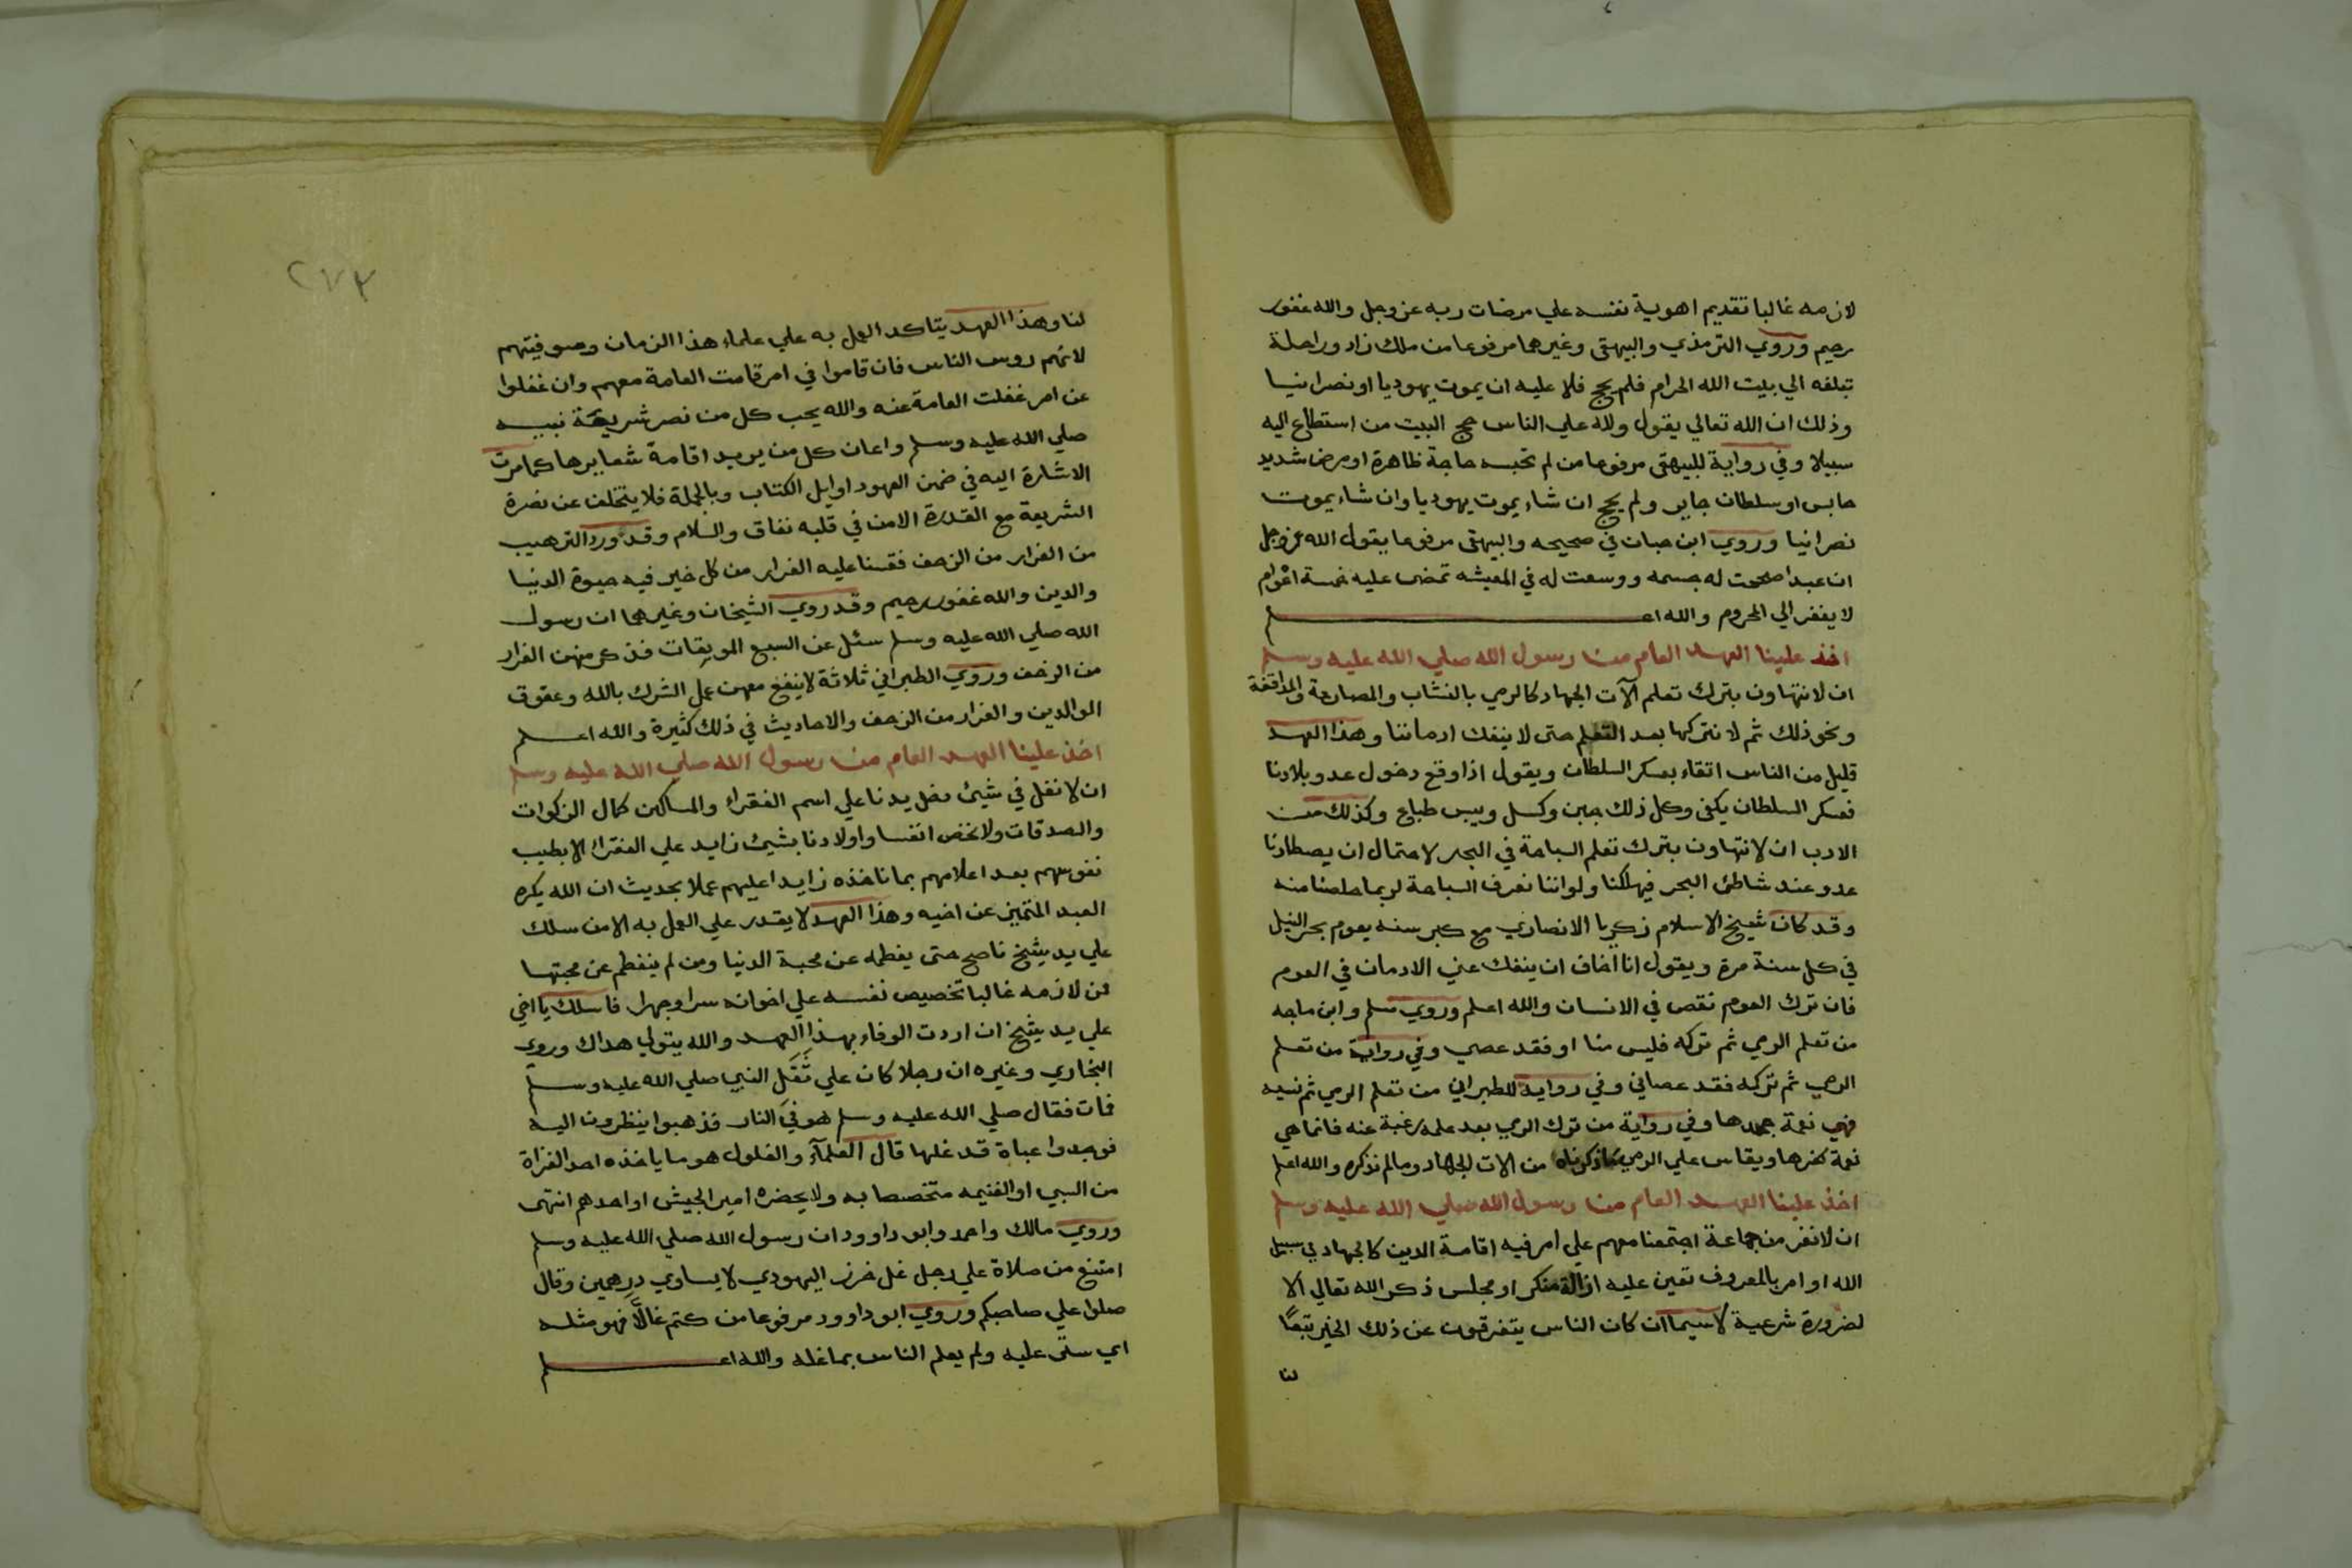 لازمه غالبا تقديم اهوية نفسه علي مرضات ربه عز وجل والله غفور
رحيم وروي الترمذي والبيهقي وغيرهما مرفوعا من ملك زاد وراحلة
تبلغه الي بيت الله الحرام فلم يحج فلا عليه ان يموت يهوديا او نصرانيا
وذلك ان الله تعالي يقول ولله علي الناس حج البيت من استطاع اليه
سبيلا وفي رواية للبيهقي مرفوعا من لم تحبسه حاجة ظاهرة او مرض شديد
حابس او سلطان جاير ولم يحج ان شاء يموت يهوديا وان شاء يموت
نصرانيا وروي ابن حبان في صحيحه والبيهقي مرفوعا يقول الله عز وجل
ان عبدا صححت له جسمه ووسعت له في المعيشه تمضى عليه خمسة اعوام
لا يغفر الي المحروم والله اعلم
اخذ علينا العهد العام من رسول الله صلي الله عليه وسلم
ان لا نتهاون بترك تعلم آلات الجهاد كالرمي بالنشاب والمصارعة والمدافعة
ونحو ذلك ثم لا نتركها بعد التعلم حتى لا ينفك ادماننا وهذا العهد
قليل من الناس اتقاء بعسكر السلطان ويقول اذا وقع دخول عدو بلادنا
فعسكر السلطان يكفي وكل ذلك جبن وكسل ويبس طباع وكذلك من
الادب ان لا نتهاون بترك تعلم السباحة في البحر لاحتمال ان يصطادنا
عدو عند شاطئ البحر فيهلكنا ولو اننا نعرف السباحة لربما خلصنا منه
وقد كان شيخ الاسلام زكريا الانصاري مع كبر سنه يعوم بحر النيل
في كل سنة مرة ويقول انا اخاف ان ينفك عني الادمان في العوم
فان ترك العوم نقص في الانسان والله اعلم وروي مسلم وابن ماجه
من تعلم الرمي ثم تركه فليس منا او فقد عصي وفي رواية من تعلم
الرمي ثم تركه فقد عصاني وفي رواية للطبراني من تعلم الرمي ثم نسيه
فهي نعمة جحدها وفي رواية من ترك الرمي بعد علمه رغبة عنه فانما هي
نعمة كفرها ويقاس علي الرمي ماذكرناه من الات الجهاد ومالم نذكره والله اعلم
اخذ علينا العهد العام من رسول الله صلي الله عليه وسلم
ان لا نفر من جماعة اجتمعنا معهم علي امر فيه اقامة الدين كالجهاد في سبيل
الله او امر بالمعروف تعين عليه ازالة منكر او مجلس ذكر الله تعالي الا
لضرورة شرعية لاسيما ان كان الناس يتفرقون عن ذلك الخير تبعًا
لنا
٢٧٣
لنا وهذا العهد يتاكد العمل به علي علماء هذا الزمان وصوفيتهم
لانهم روس الناس فان قاموا في امر قامت العامة معهم وان غفلوا
عن امر غفلت العامة عنه والله يحب كل من نصر شريعة نبيه
صلي الله عليه وسلم واعان كل من يريد اقامة شعايرها كما مرت
الاشارة اليه في ضمن العهود اوايل الكتاب وبالجملة فلا يتخلف عن نصرة
الشريعة مع القدرة الا من في قلبه نفاق والسلام وقد ورد الترهيب
من الفرار من الزحف فقسنا عليه الفرار من كل خير فيه حيوة الدنيا
والدين والله غفور رحيم وقد روي الشيخان وغيرهما ان رسول
الله صلي الله عليه وسلم سئل عن السبع الموبقات فذكر منهن الفرار
من الزحف وروي الطبراني ثلاثة لا ينفع معهن عمل الشرك بالله وعقوق
الوالدين والفرار من الزحف والاحاديث في ذلك كثيرة والله اعلم
اخذ علينا العهد العام من رسول الله صلي الله عليه وسلم
ان لا نغل في شيئ دخل يدنا علي اسم الفقراء والمساكين كمال الزكوات
والصدقات ولا نخص انفسا واولادنا بشيئ زايد علي الفقراء الا بطيب
نفوسهم بعد اعلامهم بما ناخذه زايدا عليهم عملا بحديث ان الله يكره
العبد المتميز عن اخيه وهذا العهد لا يقدر علي العمل به الا من سلك
علي يد شيخ ناصح حتى يفطمه عن محبة الدنيا ومن لم ينفطم عن محبتها
فمن لازمه غالبا تخصيص نفسه علي اخوانه سرا وجهرا فاسلك يا اخي
علي يد شيخ ان اردت الوفاء بهذا العهد والله يتولي هداك وروي
البخاري وغيره ان رجلا كان علي ثَقَل النبي صلي الله عليه وسلم
فمات فقال صلي الله عليه وسلم هو في النار فذهبوا ينظرون اليه
فوجدوا عباة قد غلها قال العلمآء والغلول هو ما ياخذه احد الغزاة
من السبي او الغنيمه متخصصا به ولا يحضره امير الجيش او احدهم انتهى
وروي مالك واحمد وابو داوود ان رسول الله صلي الله عليه وسلم
امتنع من صلاة علي رجل غل خرز اليهودي لا يساوي درهمين وقال
صلوا علي صاحبكم وروي ابو داوود مرفوعا من كتم غالًّا فهو مثله
اي ستر عليه ولم يعلم الناس بما غله والله اعلم